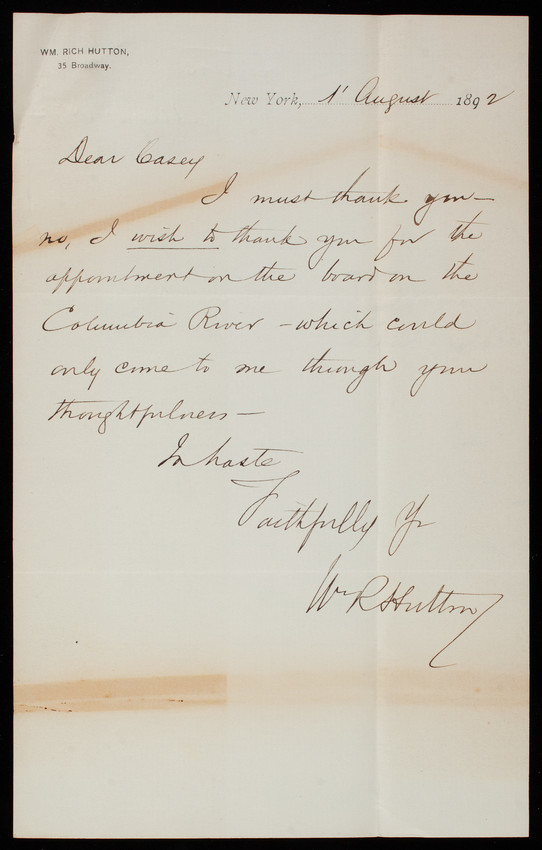 WM. RICH HUTTON,
35 Broadway.
New York, 1' August 1892
Dear Casey
I must thank you—
no, I wish to thank you for the
appointment on the board on the
Columbia River – which could
only come to me through your
thoughtfulness —
In haste
Faithfully Yr
Wm R Hutton